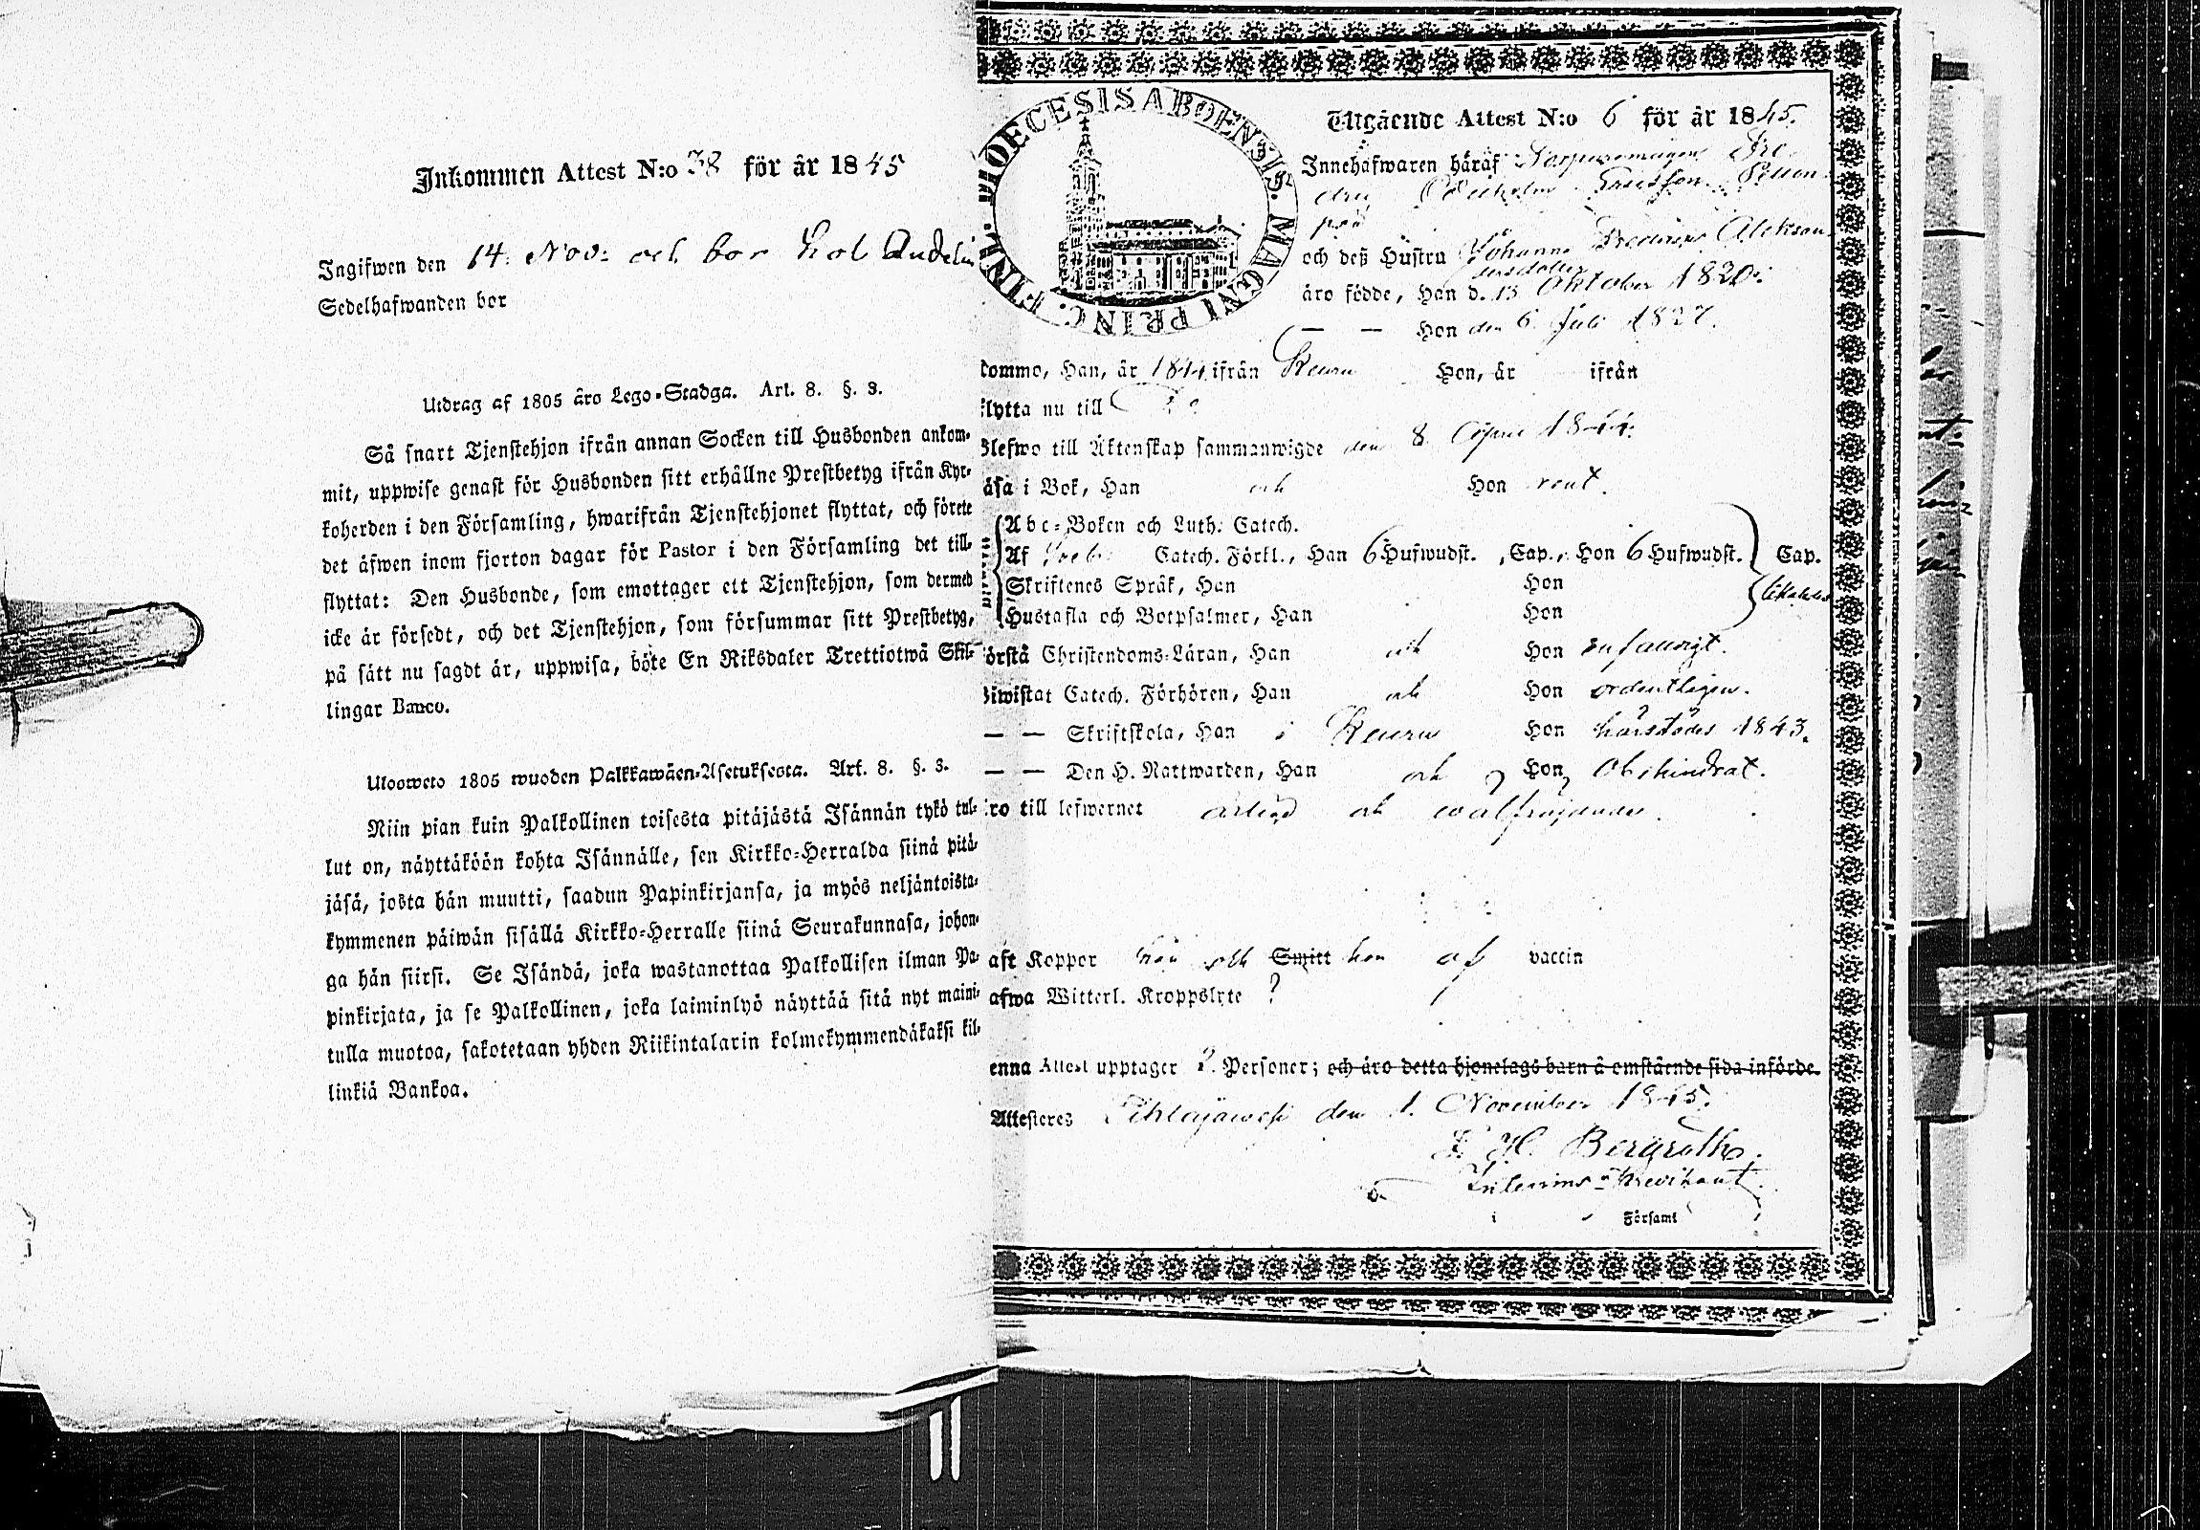 Inkommen Attest N:o 38 för år 1845
Ingifwen den 14. Nov: och bor hol Audelin
Sedelhafwanden bor
Utdrag af 1805 åro Lego-Stadga. Art. 8. §. 3.
Så snart Tjenstehjon ifrån annan Socken till Husbonden ankom-
mit, uppwise genast för Husbonden sitt erhållne Prestbetyg ifrån Kyr-
koherden i den Församling, hwarifrån Tjenstehjonet flyttat, och förete
det äfwen inom fjorton dagar för Pastor i den Församling det till-
flyttat: Den Husbonde, som emottager ett Tjenstehjon, som dermed
icke är försedt, och det Tjenstehjon, som försummar sitt Prestbetyg,
på sätt nu sagdt är, uppwisa, böte En Riksdaler Trettiotwå Skil-
lingar Banco.
Ulosweto 1805 wuoden Palkkawäen-Asetuksesta. Art. 8. §. 3.
Niin pian kuin Palkollinen toisesta pitäjästä Isännän tykö tul-
lut on, näyttäköön kohta Isännälle, sen Kirkko-Herralda siinä pitä-
jäsä, josta hän muutti, saadun Papinkirjansa, ja myös neljäntoista-
kymmenen päiwän sisällä Kirkko-Herralle siinä Seurakunnasa, johon-
ga hän siirsi. Se Isändä, joka wastanottaa Palkollisen ilman Pa-
pinkirjata, ja se Palkollinen, joka laiminlyö näyttää sitä nyt maini-
tulla muotoa, sakotetaan yhden Riikintalarin kolmekymmendäkaksi kil-
linkiä Bankoa.
DIOECESIS ABOENSIS. MAGNI PRINC. FINL.
Utgående Attest N:o 6 för år 1845.
Innehafwaren häraf
och deß Hustru Johanna
äro födde, Han d. 13 Oktober 1820.
— — Hon den 6. Juli 1827.
kommo, Han, år 1841 ifrån Keuru Hon, år ifrån
flytta nu till
Blefwo till Äktenskap sammanwigde den 8 April 1844.
äsa i Bok, Han och Hon rent.
Abc-Boken och Luth. Catech.
Af Catech. Förkl., Han 6 Hufwudst. Cap., Hon 6 Hufwudst. Cap.
Skriftenes Språk, Han Hon
Hustafla och Botpsalmer, Han Hon
örstå Christendoms-Läran, Han och Hon enfaldigt.
Biwistat Catech. Förhören, Han och Hon ordentligen.
— — Skriftskola, Han i Keuru Hon härstädes 1843.
— — Den H. Nattwarden, Han och Hon obehindrat.
äro till lefwernet ärliga och wälfräjdade.
aft Koppor han och Smitt hon af vaccin
afwa Witterl. Kroppslyte ?
enna Attest upptager 2. Personer; och äro detta hjonelags barn å omstående sida införde.
Attesteres Pihlajawesi den 1. November 1845.
F. H. Bergroth.
Interims Predikant
i Församl